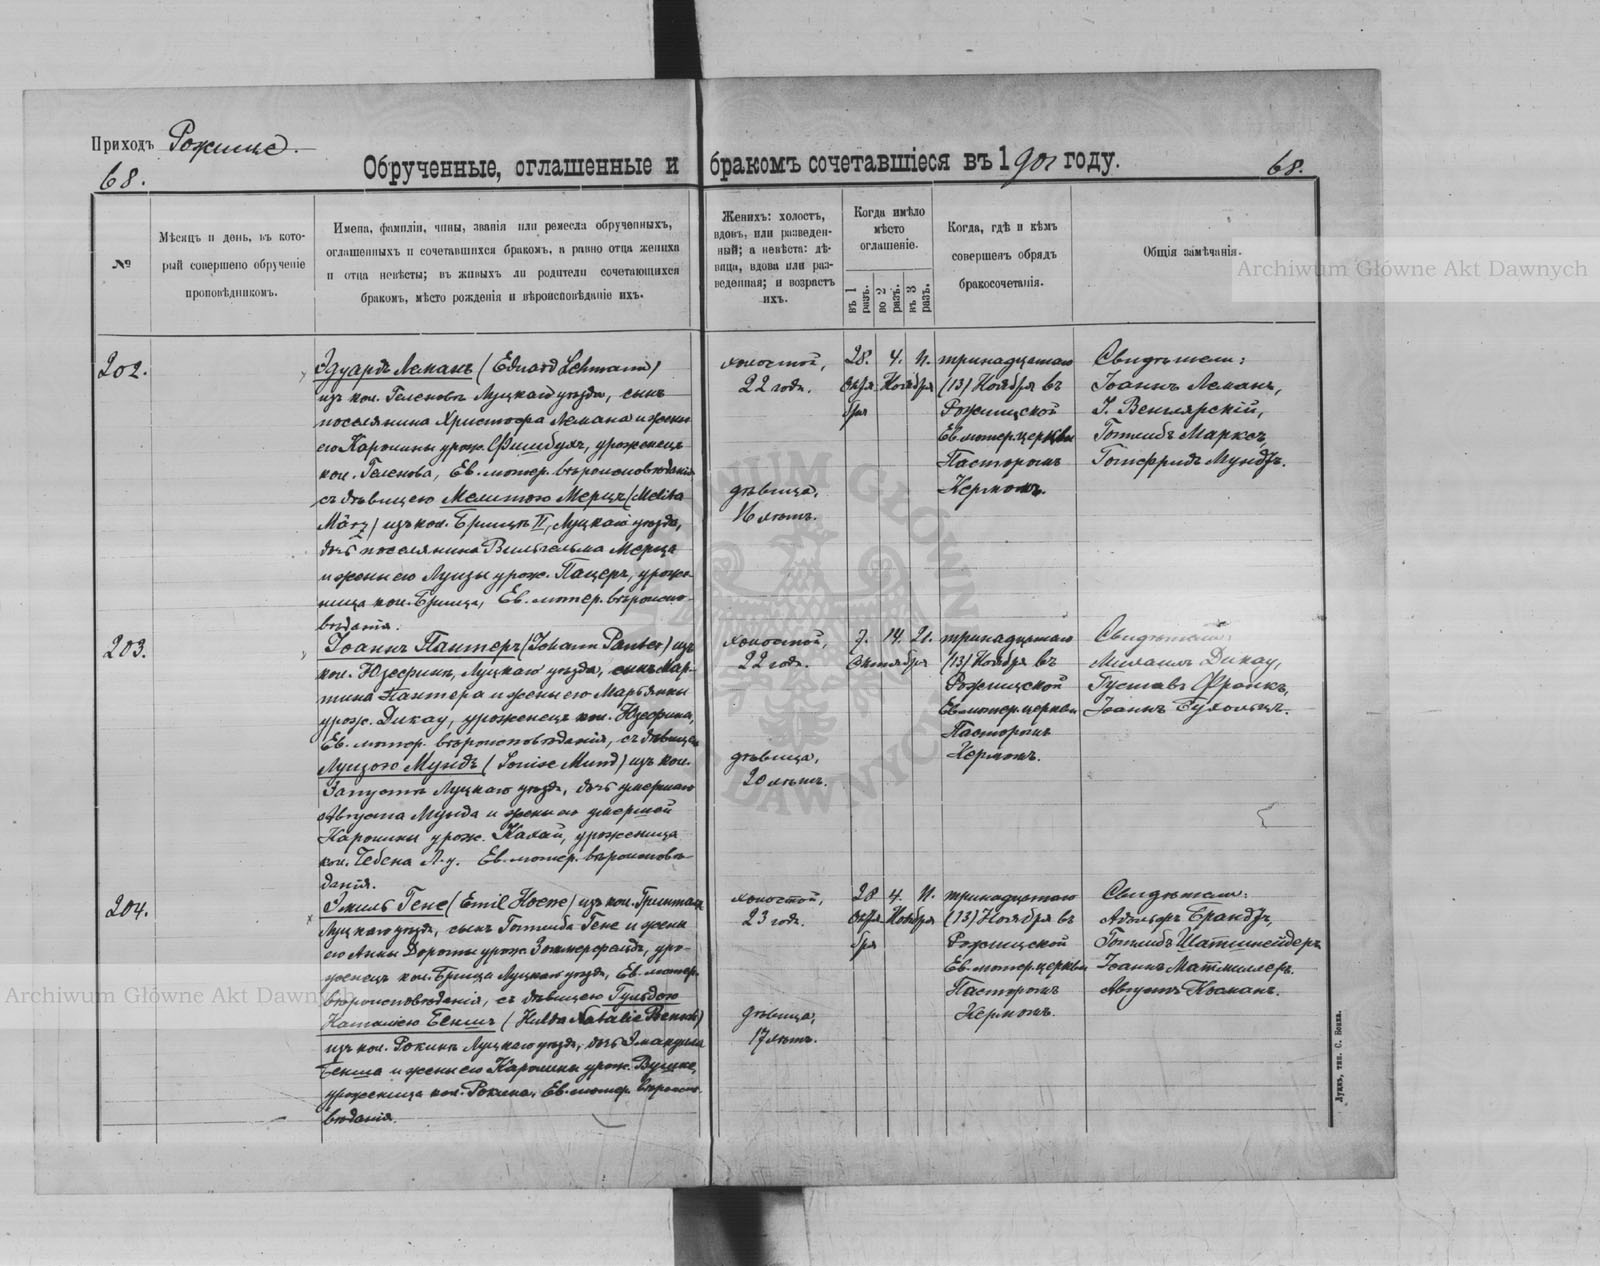 Приходъ Рожище.
68.
Обрученные, оглашенные и бракомъ сочетавшіеся въ 1901 году.
68.
№
Мѣсяцъ и день, въ кото-
рый совершено обрученіе
проповѣдникомъ.
Имена, фамиліи, чины, званія или ремесла обрученныхъ,
оглашенныхъ и сочетавшихся бракомъ, а равно отца жениха
и отца невѣсты; въ живыхъ ли родители сочетающихся
бракомъ, мѣсто рожденія и вѣроисповѣданіе ихъ.
Женихъ: холостъ,
вдовъ, или разведен-
ный; а невѣста: дѣ-
вица, вдова или раз-
веденная; и возрастъ
ихъ.
Когда имѣло
мѣсто
оглашеніе.
въ 1 разъ.
во 2 разъ.
въ 3 разъ.
Когда, гдѣ и кѣмъ
совершенъ обрядъ
бракосочетанія.
Общія замѣчанія.
Archiwum Główne Akt Dawnych
202.
Эдуардъ Леманъ (Eduard Lehmann)
изъ кол. Геленовъ Луцкаго уѣзда, сынъ
поселянина Христофа Лемана и жены
его Каролины урож. Фимбухъ, уроженецъ
кол. Геленова, Ев. лютер. вѣроисповѣданія
съ дѣвицею Мелитою Мерцъ (Melita
März) изъ кол. Брищъ II, Луцкаго уѣзда,
дочь поселянина Вильгельма Мерца
и жены его Луизы урож. Пацеръ, уроже-
ница кол. Брища, Ев. лютер. вѣроиспо-
вѣданія.
холостой,
22 года.
дѣвица,
16 лѣтъ.
28. 4. 11.
Октя Ноября
бря
тринадцатаго
(13) Ноября въ
Рожищской
Ев. лютер. церкви
Пасторомъ
Кермомъ.
Свидѣтели:
Іоаннъ Леманъ,
І. Венглярскій,
Готлибъ Марксъ,
Готфридъ Мундъ.
203.
Іоаннъ Пантеръ (Johann Panter) изъ
кол. Юзефинъ, Луцкаго уѣзда, сынъ Мар-
тина Пантера и жены его Марьянны
урож. Дикау, уроженецъ кол. Юзефина,
Ев. лютер. вѣроисповѣданія, съ дѣвицею
Луизою Мундъ (Louise Mund) изъ кол.
Запустъ Луцкаго уѣзда, дочь умершаго
Августа Мунда и жены его умершой
Каролины урож. Калай, уроженица
кол. Чебена Л. у. Ев. лютер. вѣроисповѣ-
данія.
холостой,
22 года.
дѣвица,
20 лѣтъ.
7. 14. 21.
Октября
тринадцатаго
(13) Ноября въ
Рожищской
Ев. лютер. церкви
Пасторомъ
Кермомъ.
Свидѣтели:
Михаилъ Дикау,
Густавъ Франкъ,
Іоаннъ
204.
Эмиль Гене (Emil Hoene) изъ кол.
Луцкаго уѣзда, сынъ Готлиба Гене и жены
его Анны Дороты урож. Зоммерфельдъ, уро-
женецъ кол. Брища Луцкаго уѣзда, Ев. лютер.
вѣроисповѣданія, съ дѣвицею Гульдою
Наталіею Беншъ (Hulda Natalie Bensch)
изъ кол. Рокинъ Луцкаго уѣзда, дочь Эмануила
Бенша и жены его Каролины урож.
уроженица кол. Рокина, Ев. лютер. вѣроиспо-
вѣданія.
холостой,
23 года.
дѣвица,
17 лѣтъ.
28 4. 11.
Октя Ноября
бря
тринадцатаго
(13) Ноября въ
Рожищской
Ев. лютер. церкви
Пасторомъ
Кермомъ.
Свидѣтели:
Адольфъ Брандъ,
Готлибъ Шатшнейдеръ
Іоаннъ Матмиллеръ.
Августъ
Archiwum Główne Akt Dawnych
Луцкъ, тип. С. Бокка.